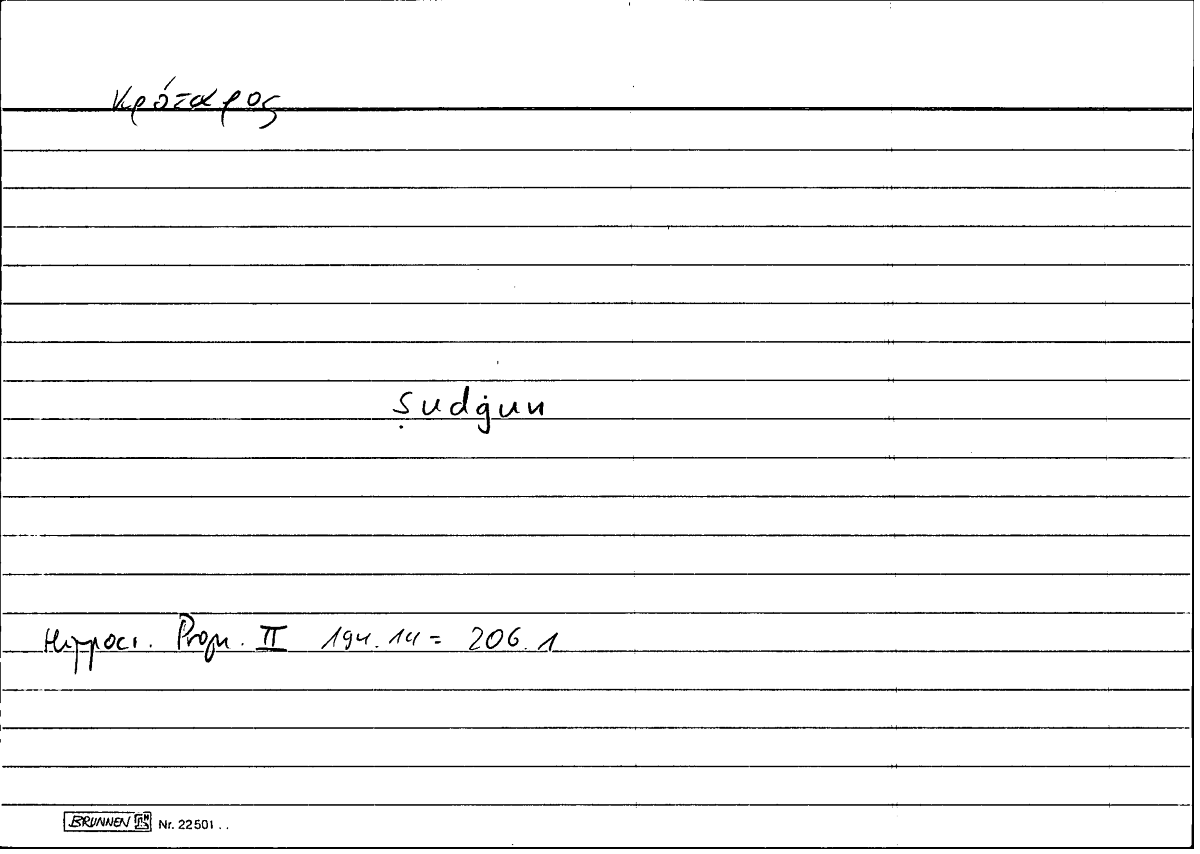 κρόταφος
ṣudġun
Hippocr. Progn. II 194.14 = 206.1
BRUNNEN Nr. 22501 . .